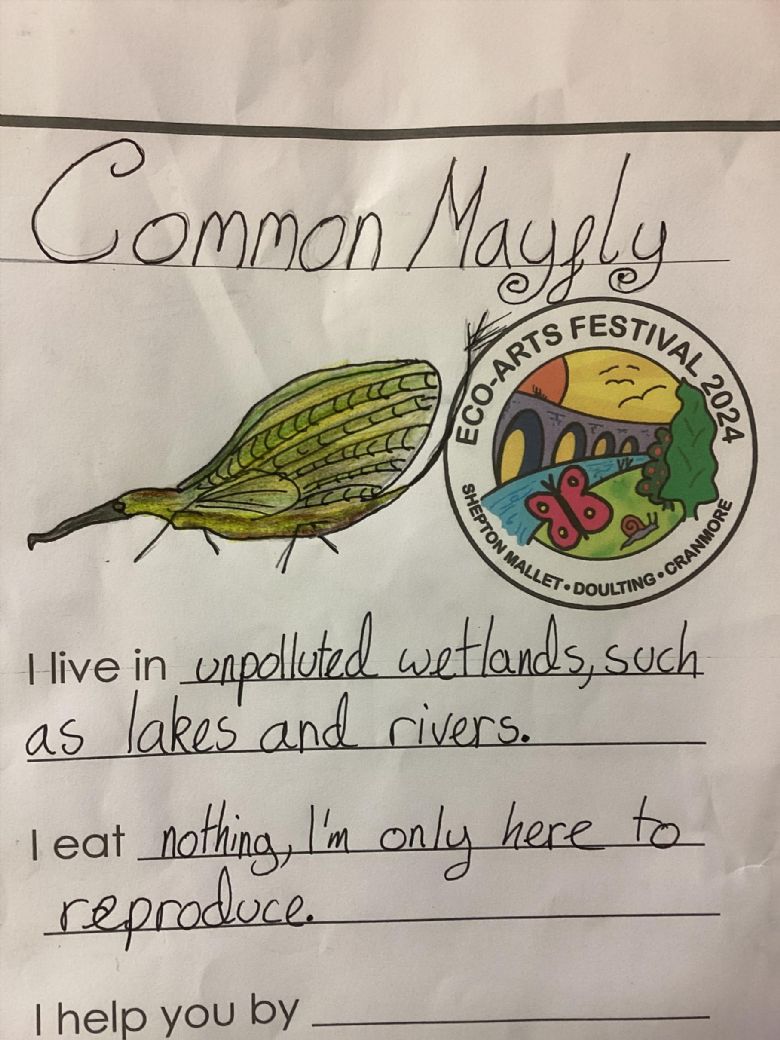 Common Mayfly
ECO-ARTS FESTIVAL 2024
SHEPTON MALLET • DOULTING • CRANMORE
I live in unpolluted wetlands, such
as lakes and rivers.
I eat nothing, I'm only here to
reproduce.
I help you by